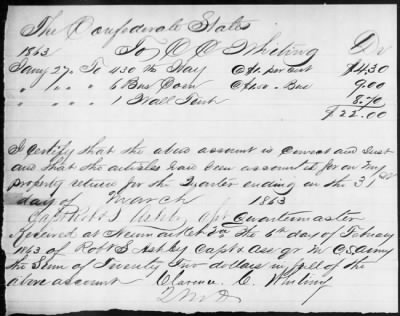 The Confederate States
1863 To C C Whiting Dr
Jany 27. To 430 lb Hay @ $1. per cent $4.30
" " " 6 Bus Corn @ 1.50 Bus 9.00
" " " 1 Wall Tent 8.70
$22.00
I certify that the above account is correct and just
and that the articles have been accounted for on my
property return for the Quarter ending on the 31st
day of March 1863
Capt Robt S Ashby Quartermaster
Received at Newmarket the 6th day of February
1863 of Robt S Ashby Capt & Ass qr m C.S. Army
the Sum of Twenty two dollars in full of the
above account Clarence C. Whiting